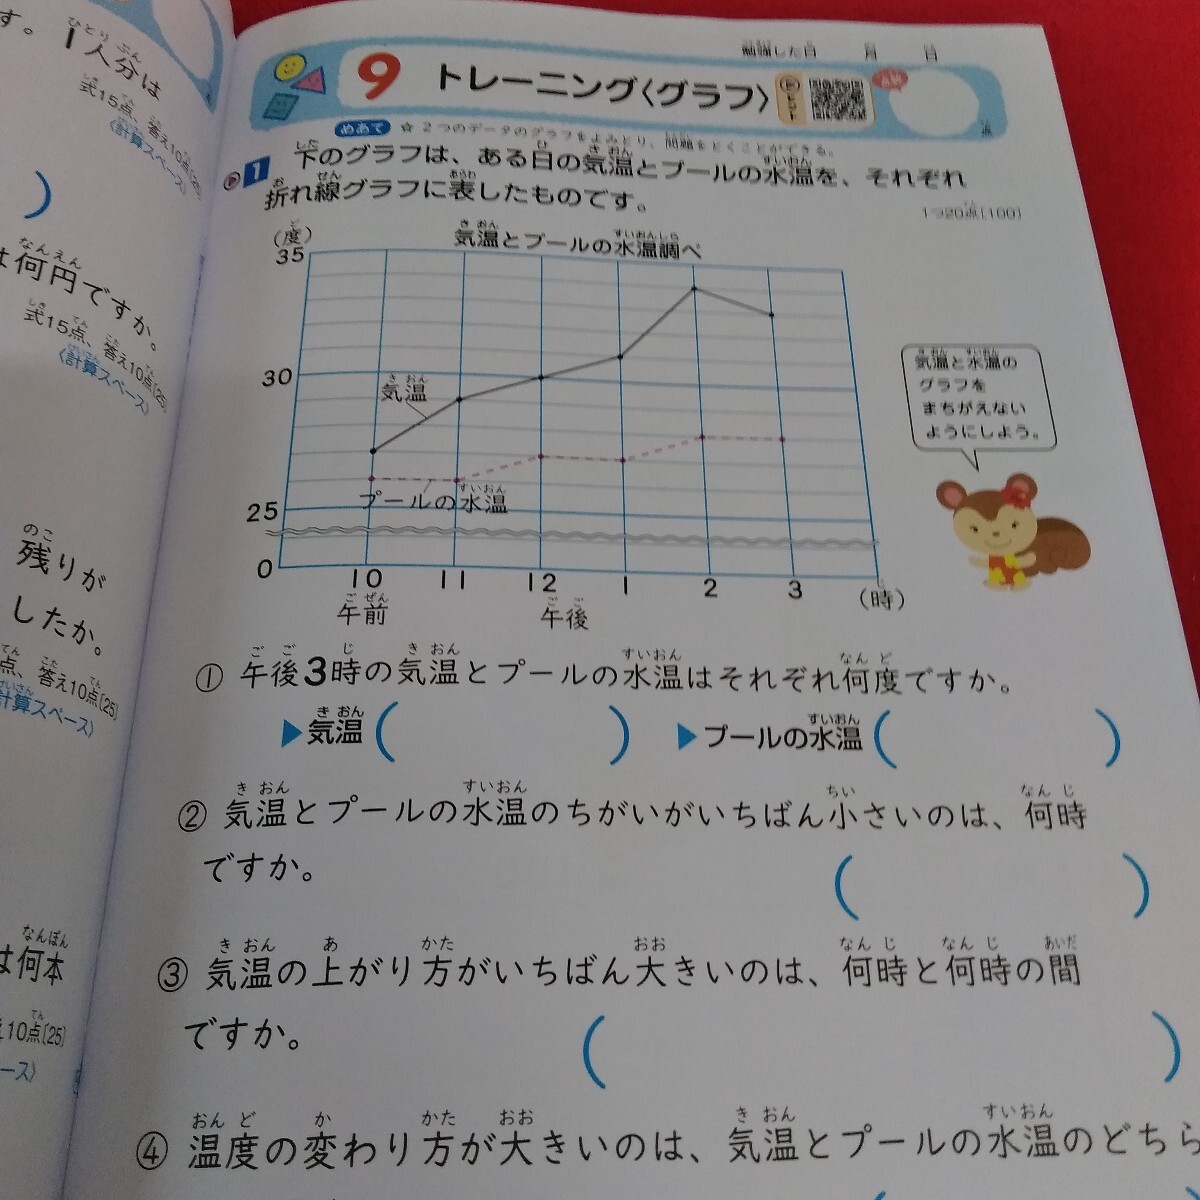 す。1人分は
ひとり ぶん
式15点、答え10点〔25〕
〈計算スペース〉
は何円ですか。
なんえん
式15点、答え10点〔25〕
〈計算スペース〉
残りが
のこ
したか。
点、答え10点〔25〕
計算スペース〉
は何本
なんぼん
え10点〔25〕
ース〉
勉強した日 月 日
9 トレーニング〈グラフ〉
ヒント
点
めあて ☆2つのデータのグラフをよみとり、問題をとくことができる。
1 下のグラフは、ある日の気温とプールの水温を、それぞれ
折れ線グラフに表したものです。
1つ20点〔100〕
気温とプールの水温調べ
(度)
35
30
25
0
気温
プールの水温
10 11 12 1 2 3 (時)
午前 午後
気温と水温の
グラフを
まちがえない
ようにしよう。
① 午後3時の気温とプールの水温はそれぞれ何度ですか。
▶気温( ) ▶プールの水温( )
② 気温とプールの水温のちがいがいちばん小さいのは、何時
ですか。 ( )
③ 気温の上がり方がいちばん大きいのは、何時と何時の間
ですか。 ( )
④ 温度の変わり方が大きいのは、気温とプールの水温のどちら